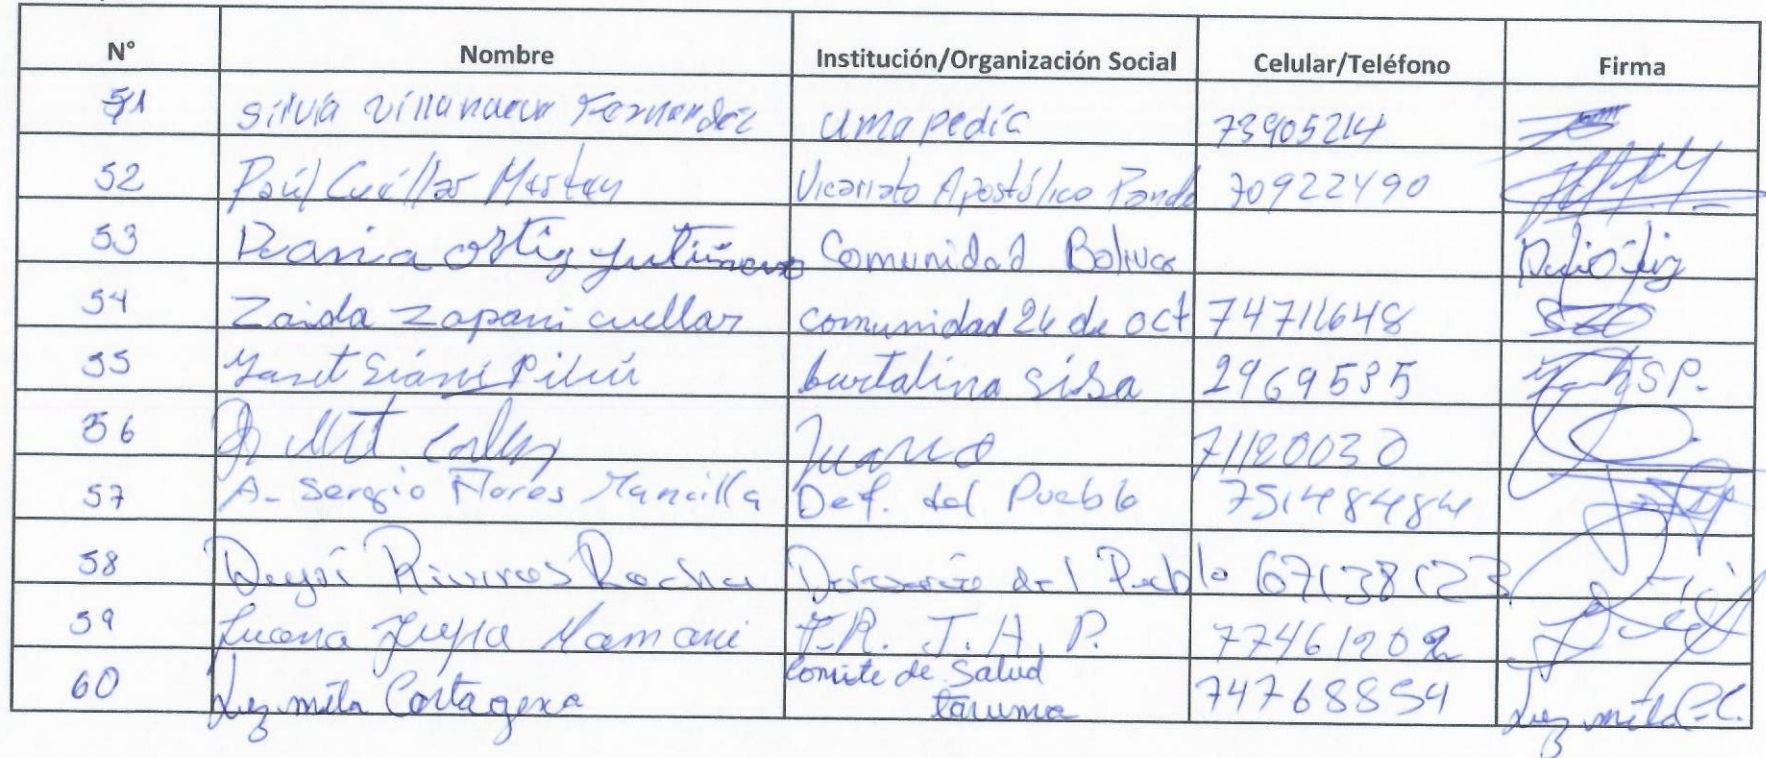 N° Nombre Institución/Organización Social Celular/Teléfono Firma
51 Silvia Villanueva Fernandez uma pedic 73905214
52 Paúl Cuéllar Vicariato Apostólico Pando 70922490
53 Dania Ortiz Comunidad Bolivar
54 Zaida Zapani cuellar comunidad 24 de oct 74711648
55 bartalina sisa 2969535
56 71120030
57 A. Sergio Flores Mancilla Def. del Pueblo 75148484
58 Deysi Riveros Rocha Defensoría del Pueblo 67138123
59 Mamani J.A.P. 77461202
60 Luz mila Cartagena Comite de Salud taruma 74768854 Luz mila C.